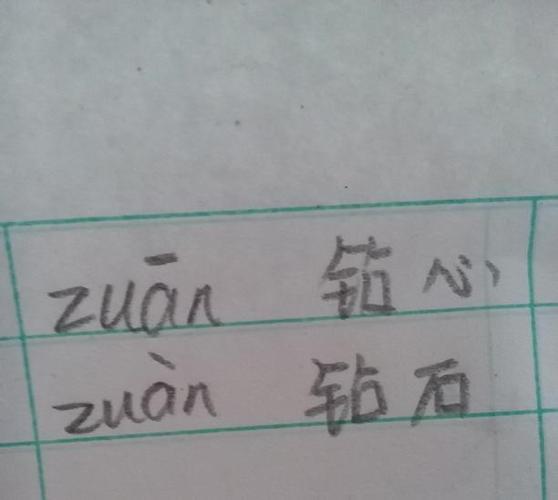 zuān 钻心
zuàn 钻石